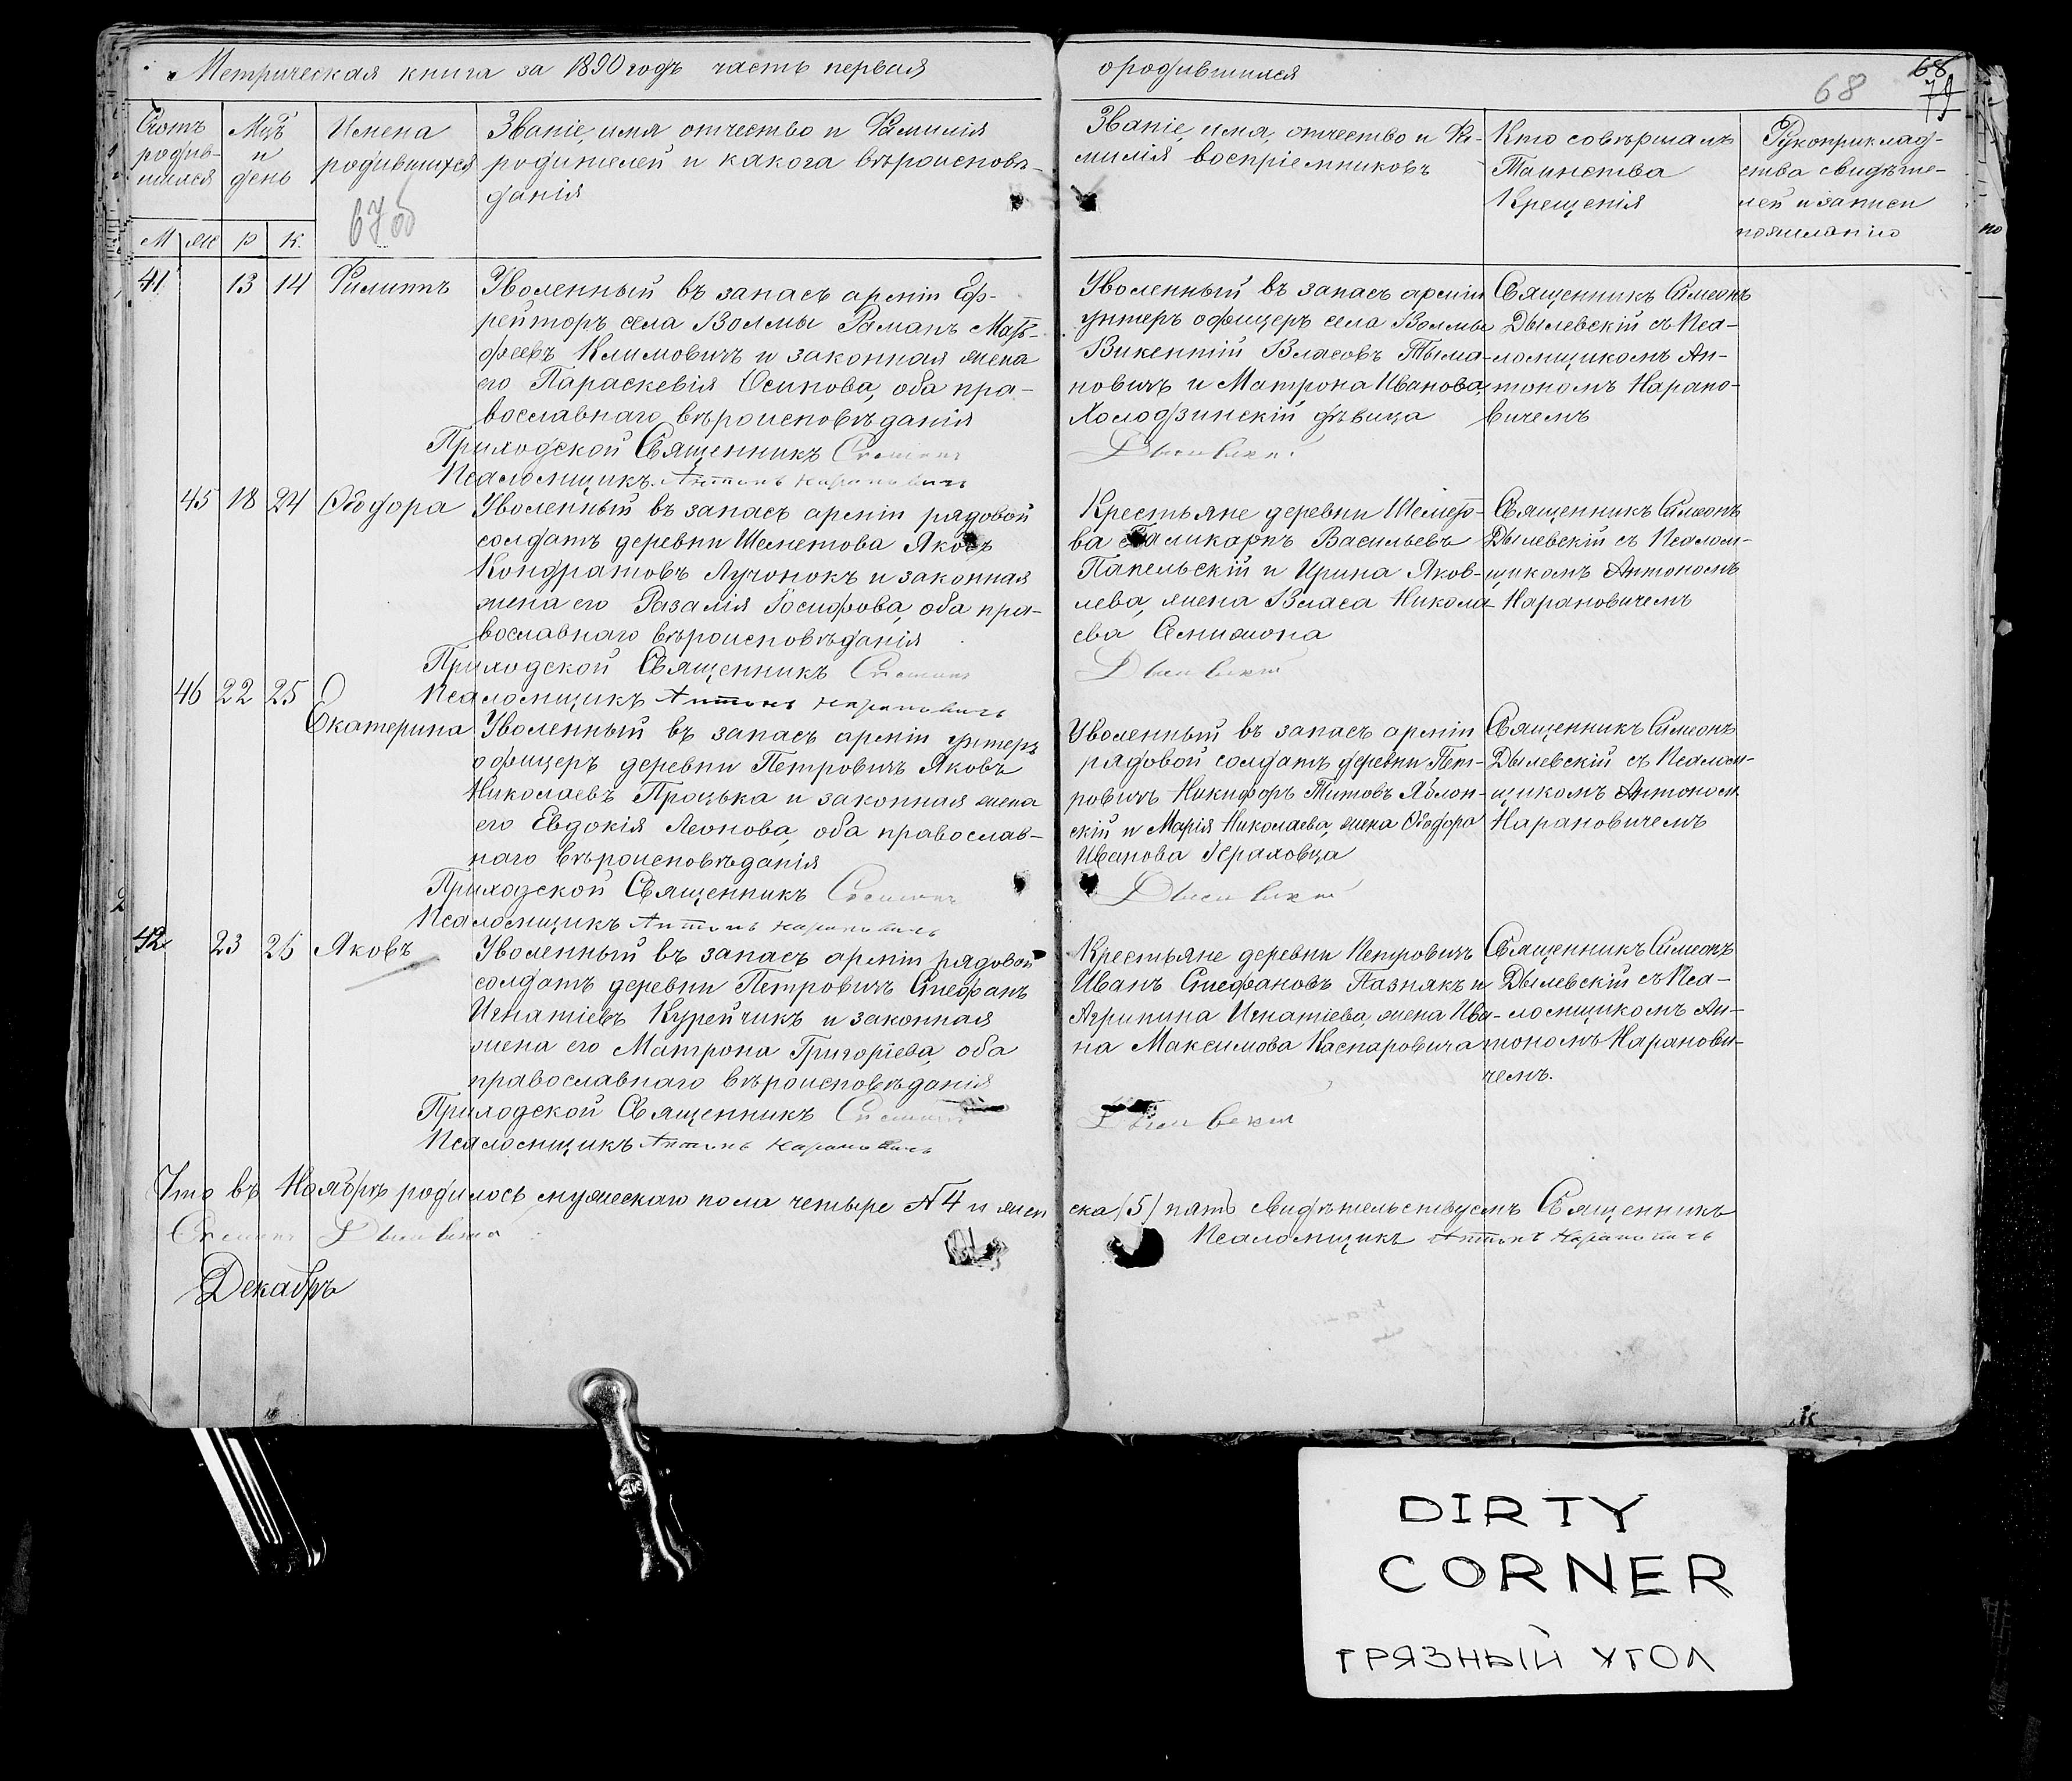 Метрическая книга за 1890 годъ часть первая
о родившихся
68
68
Счотъ родив-шихся
Мцъ и день
Имена родившихся
Званіе, имя отчество и Фамилія
родителей и какога вѣроисповѣ-
данія
67об
Званіе, имя, отчество и Фа-
милія воспріемниковъ
Кто совѣршалъ
Таинства
Крещенія
Рукоприклад-
ства свидѣте-
лей и записи
М ж р к.
41 13 14 Филиппъ
Уволенный въ запасъ арміи Еф-
рейторъ села Волмы Раманъ Мат-
фѣевъ Климовичъ и законная жена
его Параскевія Осипова, оба пра-
вославнаго вѣроисповѣданія
Приходской Священникъ Симеонъ
Псаломщикъ Антонъ Нарановичъ
Уволенный въ запасъ арміи
унтеръ офицеръ села Волмы
Викентій Власовъ Тыма-
новичъ и Матрона Иванова,
Холодзинскій дѣвица
Дылевскій
Священникъ Симеонъ
Дылевскій съ Пса-
ломщикомъ Ан-
тономъ Нарано-
вичемъ
45 18 24 Ѳеодора
Уволенный въ запасъ арміи рядовой
солдатъ деревни Шеметова Яковъ
Кондратовъ Лучонокъ и законная
жена его Разалія Іосифова, оба пра-
вославнаго вѣроисповѣданія
Приходской Священникъ Симеонъ
Псаломщикъ Антонъ Нарановичъ
Крестьяне деревни Шемето-
ва Паликарпъ Васильевъ
Папельскій и Ирина Яков-
лева, жена Власа Никола-
ева Семижона
Дылевскій
Священникъ Симеонъ
Дылевскій съ Псалом-
щикомъ Антономъ
Нарановичемъ
46 22 25 Екатерина
Уволенный въ запасъ арміи унтеръ
офицеръ деревни Петровичъ Яковъ
Николаевъ Процька и законная жена
его Евдокія Леонова, оба православ-
наго вѣроисповѣданія
Приходской Священникъ Симеонъ
Псаломщикъ Антонъ Нарановичъ
Уволенный въ запасъ арміи
рядовой солдатъ деревни Пет-
ровичъ Никифоръ Титовъ Яблон-
скій и Марія Николаева, жена Ѳеодора
Иванова Гераховца
Дылевскій
Священникъ Симеонъ
Дылевскій съ Псалом-
щикомъ Антоном
Нарановичемъ
42 23 26 Яковъ
Уволенный въ запасъ арміи рядовой
солдатъ деревни Петровичъ Стефанъ
Игнатіевъ Курейчикъ и законная
жена его Матрона Григоріева, оба
православнаго вѣроисповѣданія
Приходской Священникъ Симеонъ
Псаломщикъ Антонъ Нарановичъ
Крестьяне деревни Петровичъ
Иванъ Стефановъ Пазнякъ и
Агрипина Игнатіева, жена Ива-
на Максимова Каспаровича
Дылевскій
Священникъ Симеонъ
Дылевскій съ Пса-
ломщикомъ Ан-
тономъ Наранови-
чемъ.
Что въ Ноябрѣ родилось мужескаго пола четыре №4 и жен
ска (5) пять Свидѣтельствуемъ Священникъ
Симеонъ Дылевскій
Псаломщикъ Антонъ Нарановичъ
Декабрь
DIRTY
CORNER
ГРЯЗНЫЙ УГОЛ